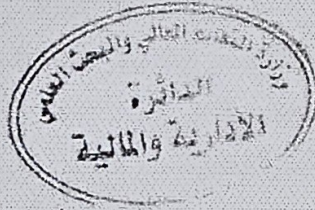 وزارة التعليم العالي والبحث العلمي
الدائرة
الادارية والمالية